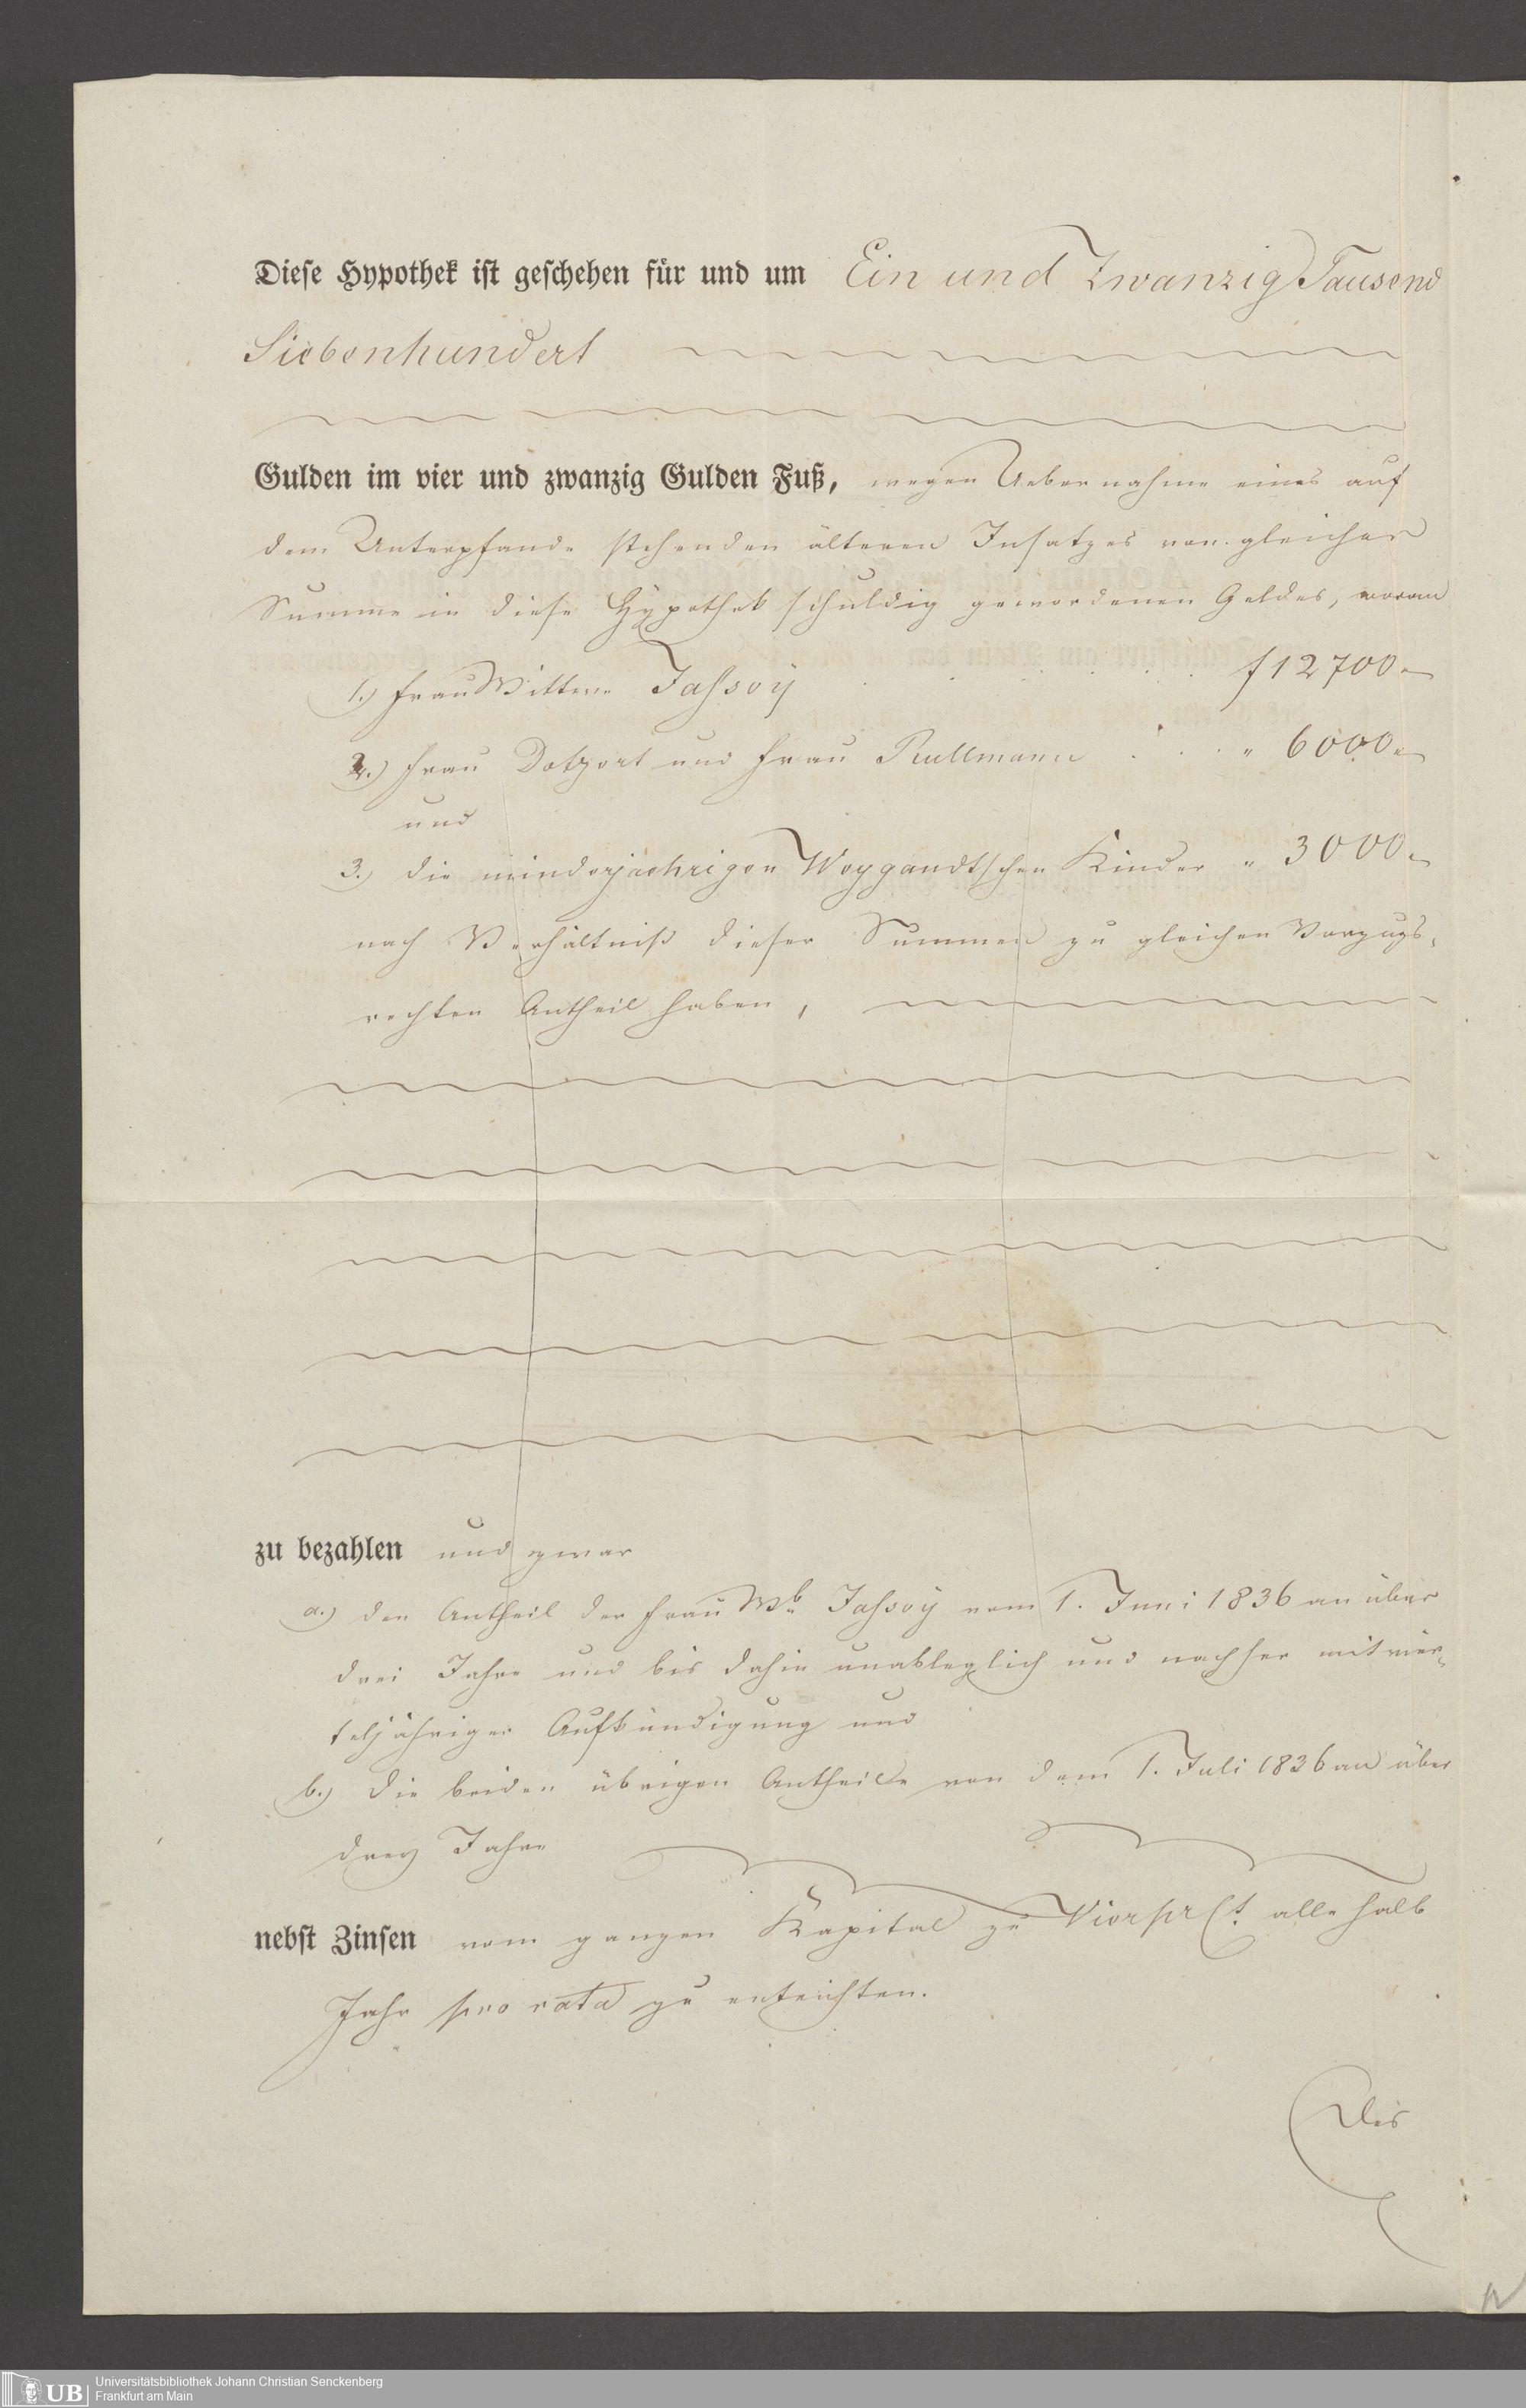 Diese Hypothek ist geschehen für und um Ein und Zwanzig Tausend
Siebenhundert
Gulden im vier und zwanzig Gulden Fuß, wegen Uebernahme eines auf
dem Unterpfande stehenden älteren Insatzes von gleicher
Summe in diese Hypothek schuldig gewordenen Geldes, woran
1.) Frau Wittwe Jassoy . . . . . . f 12700.—
2.) Frau Dotzert und Frau Rullmann . . . " 6000.—
und
3.) die minderjaehrigen Weygandtschen Kinder " 3000.—
nach Verhältniß dieser Summen zu gleichen Vorzugs-
rechten Antheil haben,
zu bezahlen und zwar
a.) den Antheil der Frau Wb Jassoy vom 1. Juni 1836 an über
drei Jahre und bis dahin unableglich und nachher mit vier-
teljähriger Aufkündigung und
b.) die beiden übrigen Antheile von dem 1. Juli 1836 an über
drey Jahre
nebst Zinsen vom ganzen Kapital zu Vier pr Ct. alle halb
Jahr pro rata zu entrichten.
Des
UB
Universitätsbibliothek Johann Christian Senckenberg
Frankfurt am Main